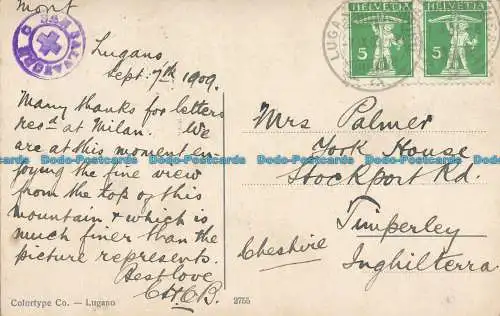 Mont
Lugano
Sept. 7th 1909.
Many thanks for letters
resd at Milan. We
are at this moment en-
joying the fine view
from the top of this
mountain & which is
much finer than the
picture represents.
Best love
Colortype Co. — Lugano
2755
HELVETIA
5
HELVETIA
5
LUGA
Mrs Palmer
York House
Stockport Rd.
Timperley
Cheshire
Inghilterra
Dodo-Postcards Dodo-Postcards Dodo-Postcards Dodo-Postcards Dodo-Postcards